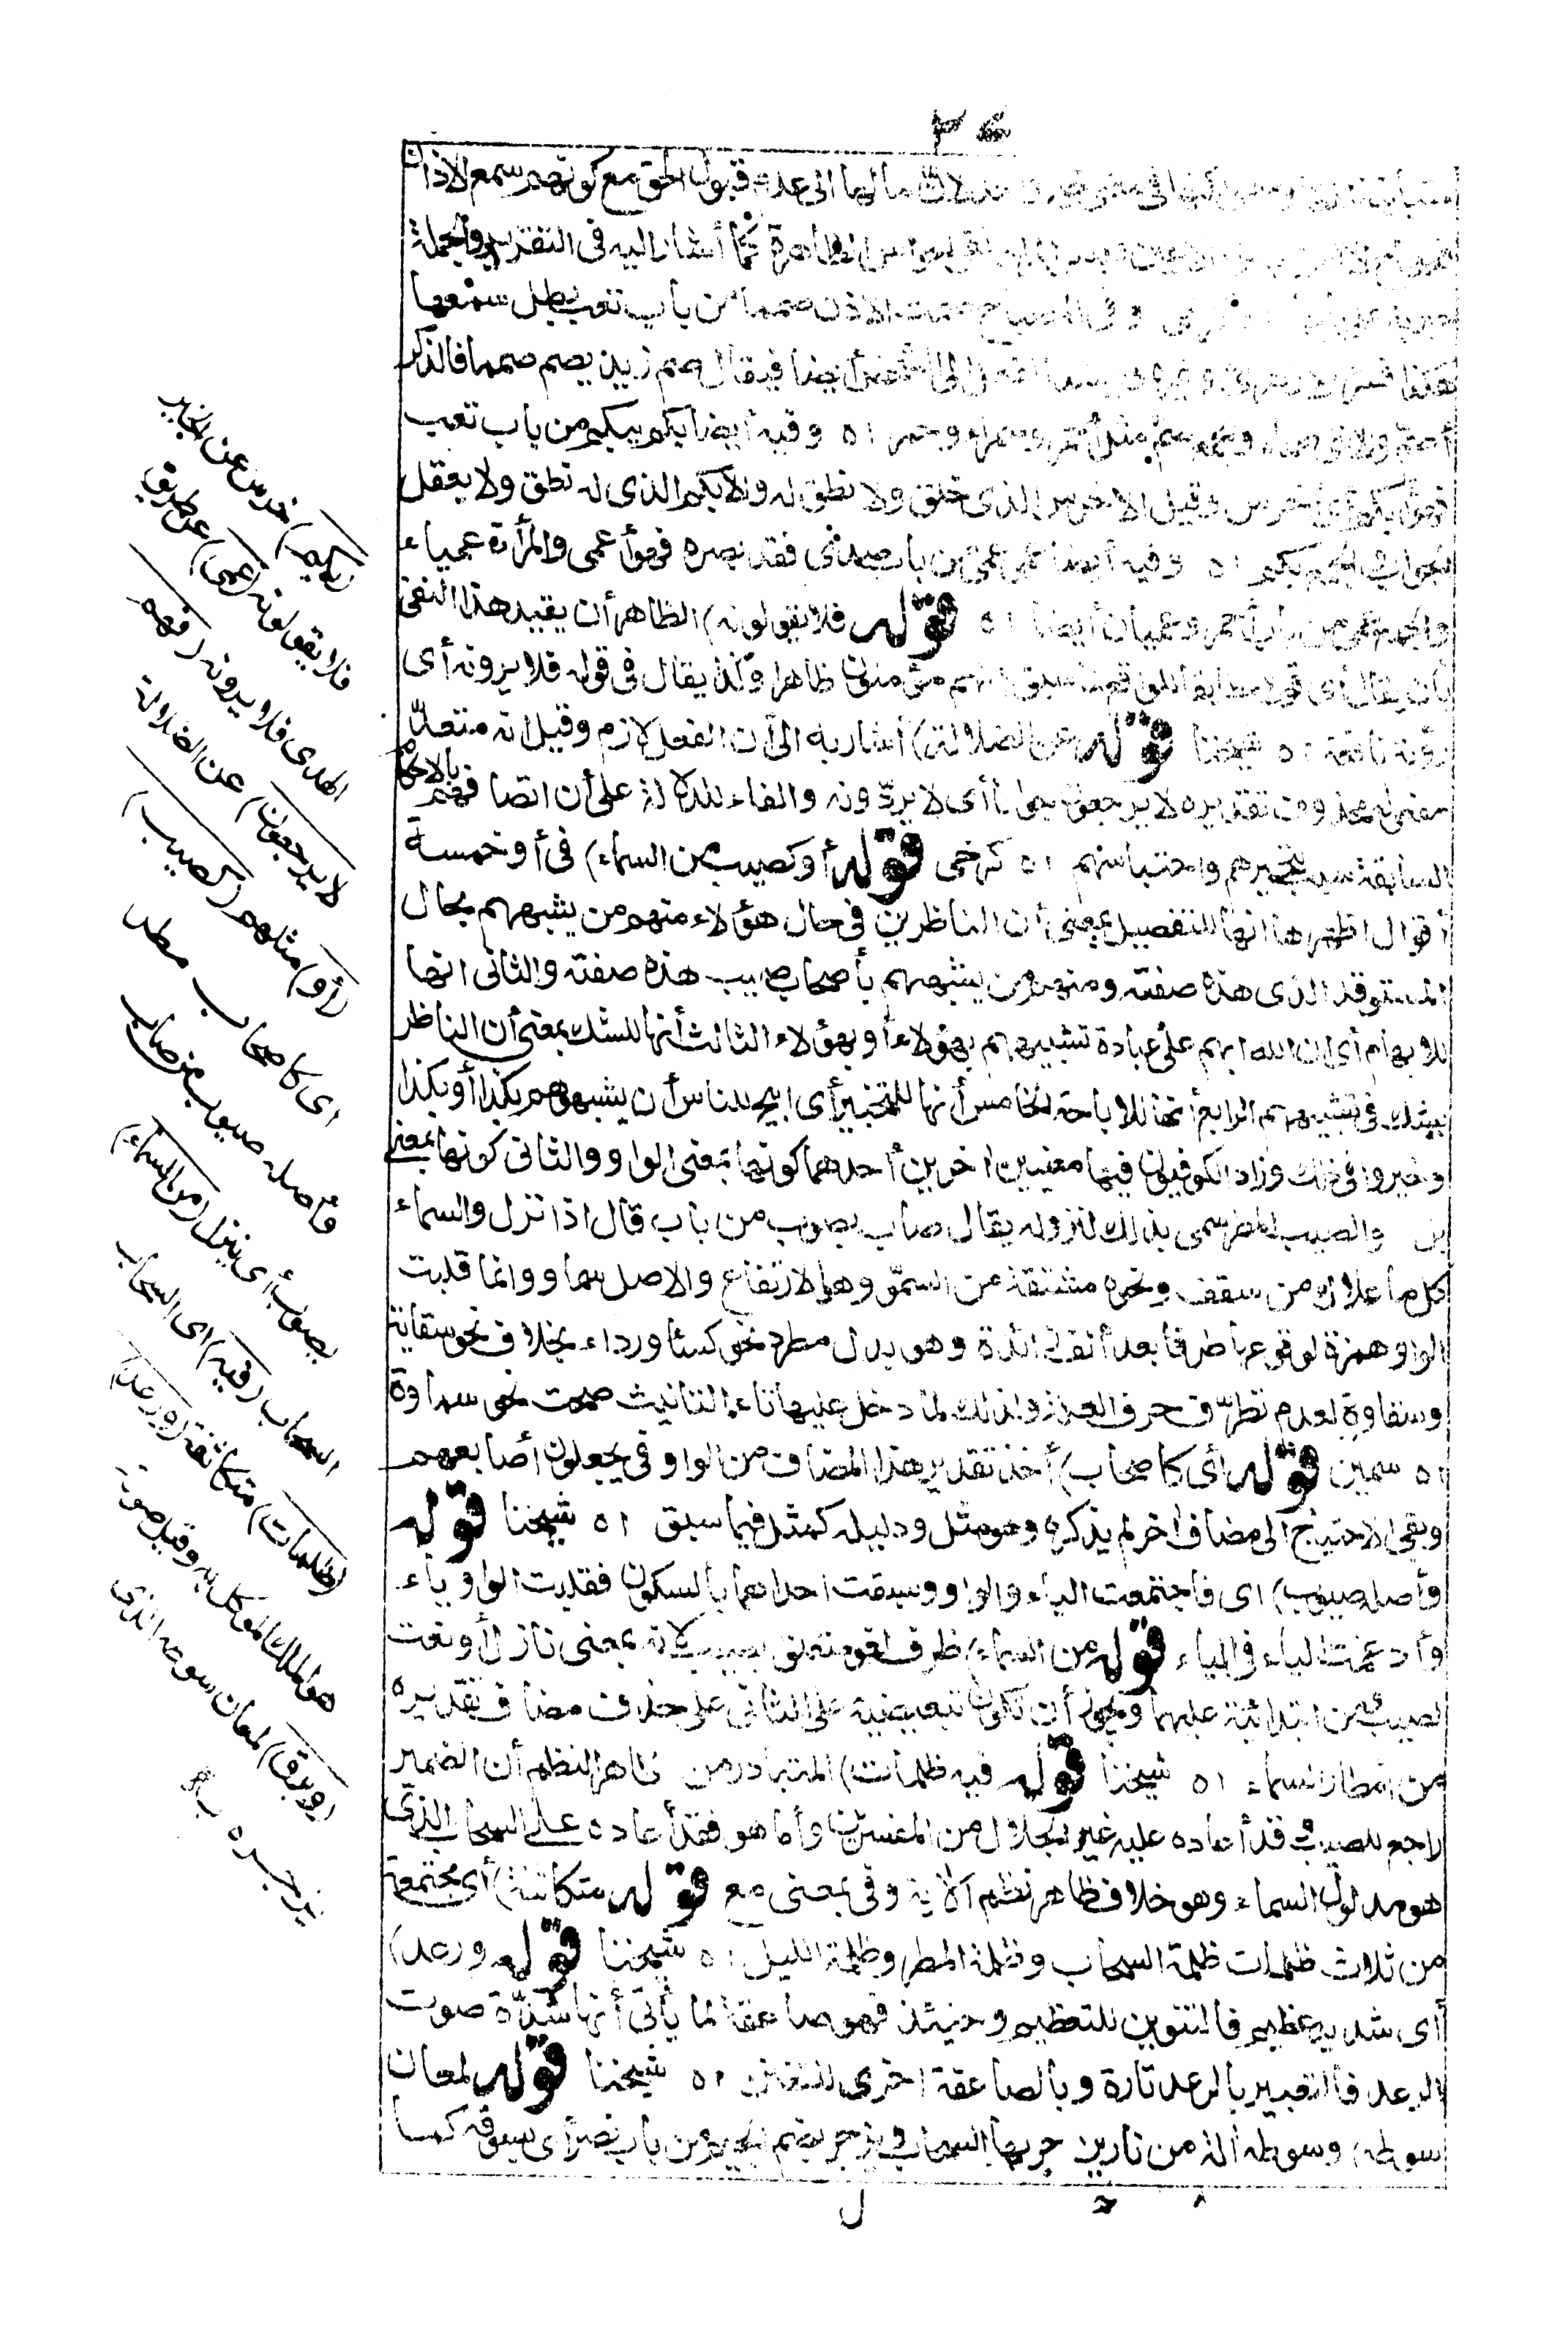 الى عدم قبول الحق مع كونهم سمع الاذان
الظاهرة كما أشار اليه فى التقدير والجملة
الاذن صمما من باب تعب بطل سمعها
أيضا فيقال صم زيد يصم صمما فالذكر
أصم والانثى صماء والجمع صم مثل أحمر وحمراء وحمر اه وفيه أيضا بكم يبكم من باب تعب
فهو أبكم أى أخرس وقيل الاخرس الذى خلق ولا نطق له والابكم الذى له نطق ولا يعقل
الجواب والجمع بكم اه وفيه أيضا عمى عمى من باب صدى فقد بصره فهو أعمى والمرأة عمياء
والجمع عمى من باب أحمر وعميان أيضا اه قوله فلا يقولونه) الظاهر أن يقيد هذا النفى
بأن يقال أى قولا مطابقا للواقع لما سبق انهم مؤمنون ظاهرا وكذا يقال فى قوله فلا يرونه أى
رؤية نافعة اه شيخنا قوله عن الضلالة) أشار به الى أن الفعل لازم وقيل انه متعد
مفعوله محذوف تقديره لا يرجعون جوابا أى لا يردونه والفاء للدلالة على أن اتصافهم بالاحكام
السابقة سبب لتحيرهم واحتباسهم اه كرخى قوله أو كصيب من السماء) فى أو خمسة
أقوال اظهرها انها للتفصيل بمعنى أن الناظرين فى حال هؤلاء منهم من يشبههم بحال
المستوقد الذى هذه صفته ومنهم من يشبههم بأصحاب صيب هذه صفته والثانى انها
للابهام أى ان الله ابهم على عباده تشبيههم بهؤلاء أو بهؤلاء الثالث أنها للشك بمعنى أن الناظر
يشك فى تشبيههم الرابع أنها للاباحة الخامس أنها للتخيير أى ابيح للناس أن يشبهوهم بكذا أو بكذا
وخيروا فى ذلك وزاد الكوفيون فيها معنيين اخرين أحدهما كونها بمعنى الواو والثانى كونها بمعنى
بل والصيب المطر سمى بذلك لنزوله يقال صاب يصوب من باب قال اذا نزل والسماء
كل ما علاك من سقف ونحوه مشتقة من السمو وهو الارتفاع والاصل سماو وانما قلبت
الواو همزة لوقوعها طرفا بعد ألف زائدة وهو بدل مطرد نحو كساء ورداء بخلاف نحو سقاية
وشقاوة لعدم تطرف حرف العلة ولذلك لما دخل عليها تاء التانيث صحت نحو سماوة
اه سمين قوله أى كاصحاب) أخذ تقدير هذا المضاف من الواو فى يجعلون أصابعهم
وبقى الاحتياج الى مضاف اخر لم يذكره وهو مثل ودليله كمثل فيما سبق اه شيخنا قوله
وأصله صيوب) اى فاجتمعت الياء والواو وسبقت احداهما بالسكون فقلبت الواو ياء
وأدغمت الياء فى الياء قوله من السماء) ظرف لغو متعلق بصيب لانه بمعنى نازل أو نعت
لصيب فمن ابتدائية عليهما ويجوز أن تكون تبعيضية على الثانى على حذف مضاف تقديره
من امطار السماء اه شيخنا قوله فيه ظلمات) المتبادر من ظاهر النظم أن الضمير
راجع للصيب وقد أعاده عليه غير الجلال من المفسرين وأما هو فقد أعاده على السحاب الذى
هو مدلول السماء وهو خلاف ظاهر نظم الاية وفى بمعنى مع قوله متكاثفة) أى مجتمعة
من ثلاث ظلمات ظلمة السحاب وظلمة المطر وظلمة الليل اه شيخنا قوله ورعد)
أى شديد عظيم فالتنوين للتعظيم وحينئذ فهو صاعقة لما يأتى أنها شدة صوت
الرعد فالتعبير بالرعد تارة وبالصاعقة اخرى للتفنن اه شيخنا قوله لمعان
سوطه) وسوطه الة من نار يزجر بها السحاب ويزجر بضم الجيم من باب نصر أى يسوقه كما
(بكم) خرس عن الخير
فلا يقولونه (عمى) عن طريق
الهدى فلا يرونه (فهم
لا يرجعون) عن الضلالة
(أو) مثلهم (كصيب)
اى كاصحاب مطر
وأصله صيوب من صاب
يصوب أى ينزل (من السماء)
السحاب (فيه) اى السحاب
(ظلمات) متكاثفة (ورعد)
هو الملك الموكل به وقيل صوته
(وبرق) لمعان سوطه الذى
يزجره به